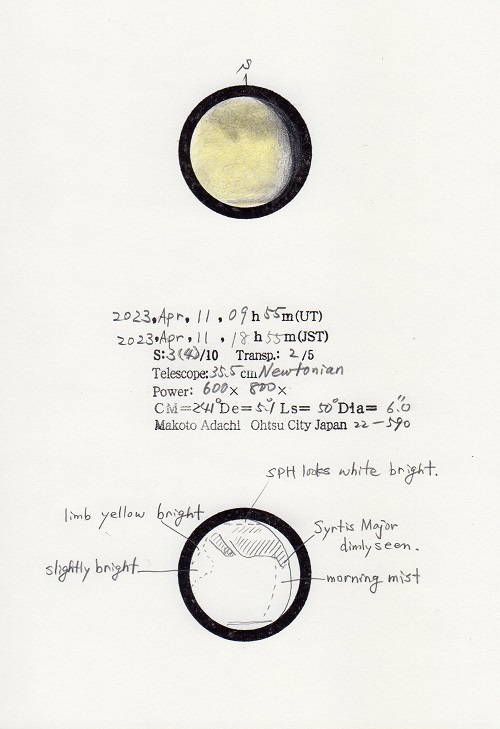 S
2023.Apr.11.09h55m(UT)
2023.Apr.11.18h55m(JST)
S:3(4)/10 Transp.: 2/5
Telescope:35.5cm Newtonian
Power: 600× 800×
CM=241° De=5.1 Ls= 50° Dia= 6.″0
Makoto Adachi Ohtsu City Japan 22-590
SPH looks white bright.
limb yellow bright
Syrtis Major
dimly seen.
slightly bright
morning mist